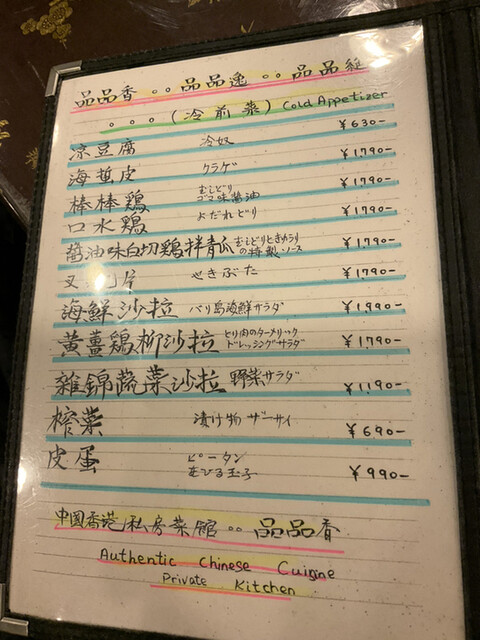 品品香 。。品品逸 。。品品純
。。。(冷前菜) Cold Appetizer
凉豆腐 冷奴 ¥630-
海蜇皮 クラゲ ¥1,790-
棒棒鶏 むしどり ゴマ味醤油 ¥1,790-
口水鶏 よだれどり ¥1,790-
醬油味白切鶏拌青瓜 むしどりときゅうりの特製ソース ¥1,790-
叉 片 やきぶた ¥1,790-
海鮮沙拉 バリ島海鮮サラダ ¥1,990-
黃薑鶏柳沙拉 とり肉のターメリックドレッシングサラダ ¥1,790-
雜錦蔬菜沙拉 野菜サラダ ¥1,190-
榨菜 漬け物 ザーサイ ¥690-
皮蛋 ピータン あひる玉子 ¥990-
中國香港私房菜館 。。品品香
Authentic Chinese Cuisine
Private Kitchen